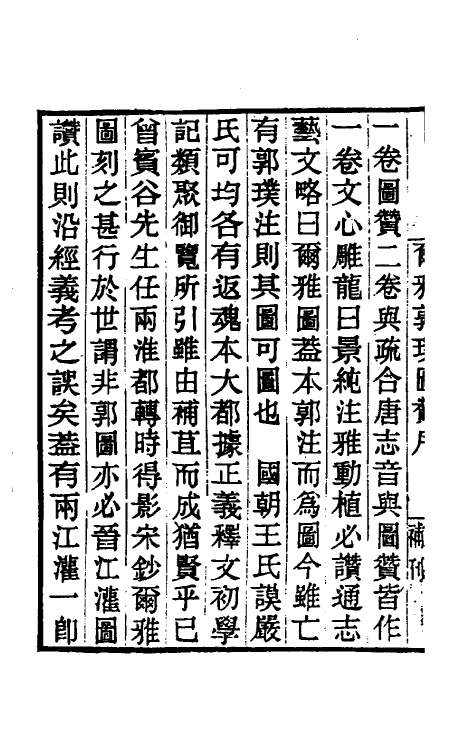 爾雅郭璞圖贊序
補刊
一卷圖贊二卷與疏合唐志音與圖贊皆作
一卷文心雕龍曰景純注雅動植必讚通志
藝文略曰爾雅圖葢本郭注而為圖今雖亡
有郭璞注則其圖可圖也　國朝王氏謨嚴
氏可均各有返魂本大都據正義釋文初學
記類聚御覽所引雖由補苴而成猶賢乎已
曾賓谷先生任兩淮都轉時得影宋鈔爾雅
圖刻之甚行於世謂非郭圖亦必晉江灌圖
讚此則沿經義考之誤矣葢有兩江灌一卽